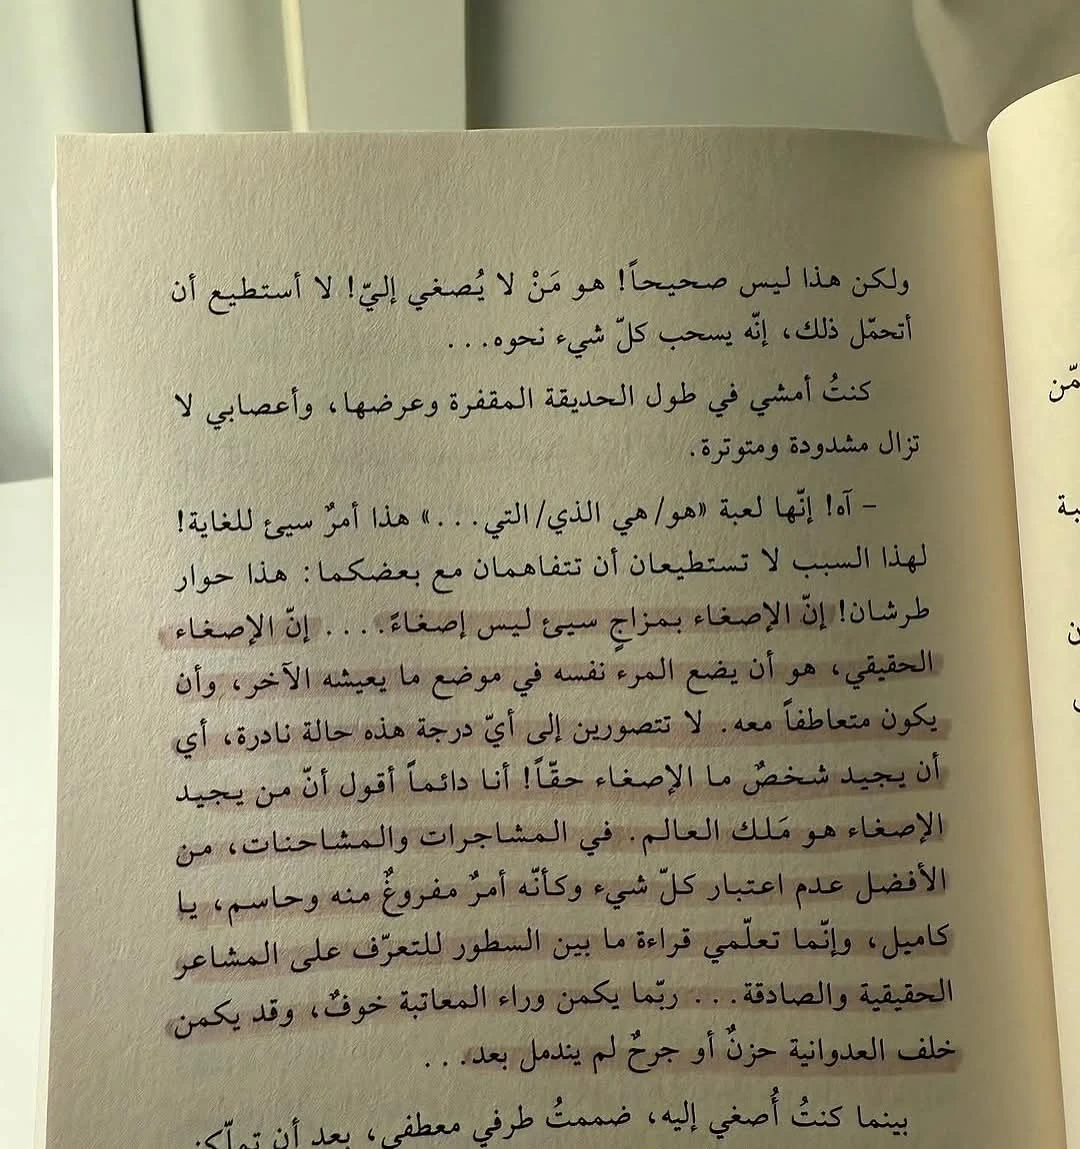 ولكن هذا ليس صحيحاً! هو مَنْ لا يُصغي إليّ! لا أستطيع أن
أتحمّل ذلك، إنّه يسحب كلّ شيء نحوه...
كنتُ أمشي في طول الحديقة المقفرة وعرضها، وأعصابي لا
تزال مشدودة ومتوترة.
– آه! إنّها لعبة «هو/هي الذي/التي...» هذا أمرٌ سيئ للغاية!
لهذا السبب لا تستطيعان أن تتفاهمان مع بعضكما: هذا حوار
طرشان! إنّ الإصغاء بمزاجٍ سيئ ليس إصغاءً.... إنّ الإصغاء
الحقيقي، هو أن يضع المرء نفسه في موضع ما يعيشه الآخر، وأن
يكون متعاطفاً معه. لا تتصورين إلى أيّ درجة هذه حالة نادرة، أي
أن يجيد شخصٌ ما الإصغاء حقّاً! أنا دائماً أقول أنّ من يجيد
الإصغاء هو مَلك العالم. في المشاجرات والمشاحنات، من
الأفضل عدم اعتبار كلّ شيء وكأنّه أمرٌ مفروغٌ منه وحاسم، يا
كاميل، وإنّما تعلّمي قراءة ما بين السطور للتعرّف على المشاعر
الحقيقية والصادقة... ربّما يكمن وراء المعاتبة خوفٌ، وقد يكمن
خلف العدوانية حزنٌ أو جرحٌ لم يندمل بعد...
بينما كنتُ أُصغي إليه، ضممتُ طرفي معطفي، بعد أن